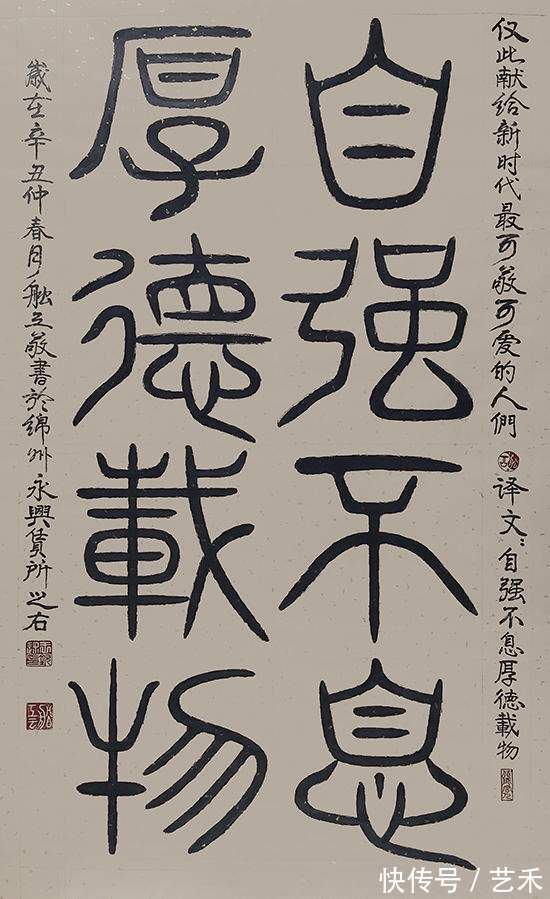 仅此献给新时代最可敬可爱的人們
译文：自强不息厚德載物
自强不息
厚德載物
歲在辛丑仲春月舩之敬書於绵州永興賃所之右
快传号 / 艺禾